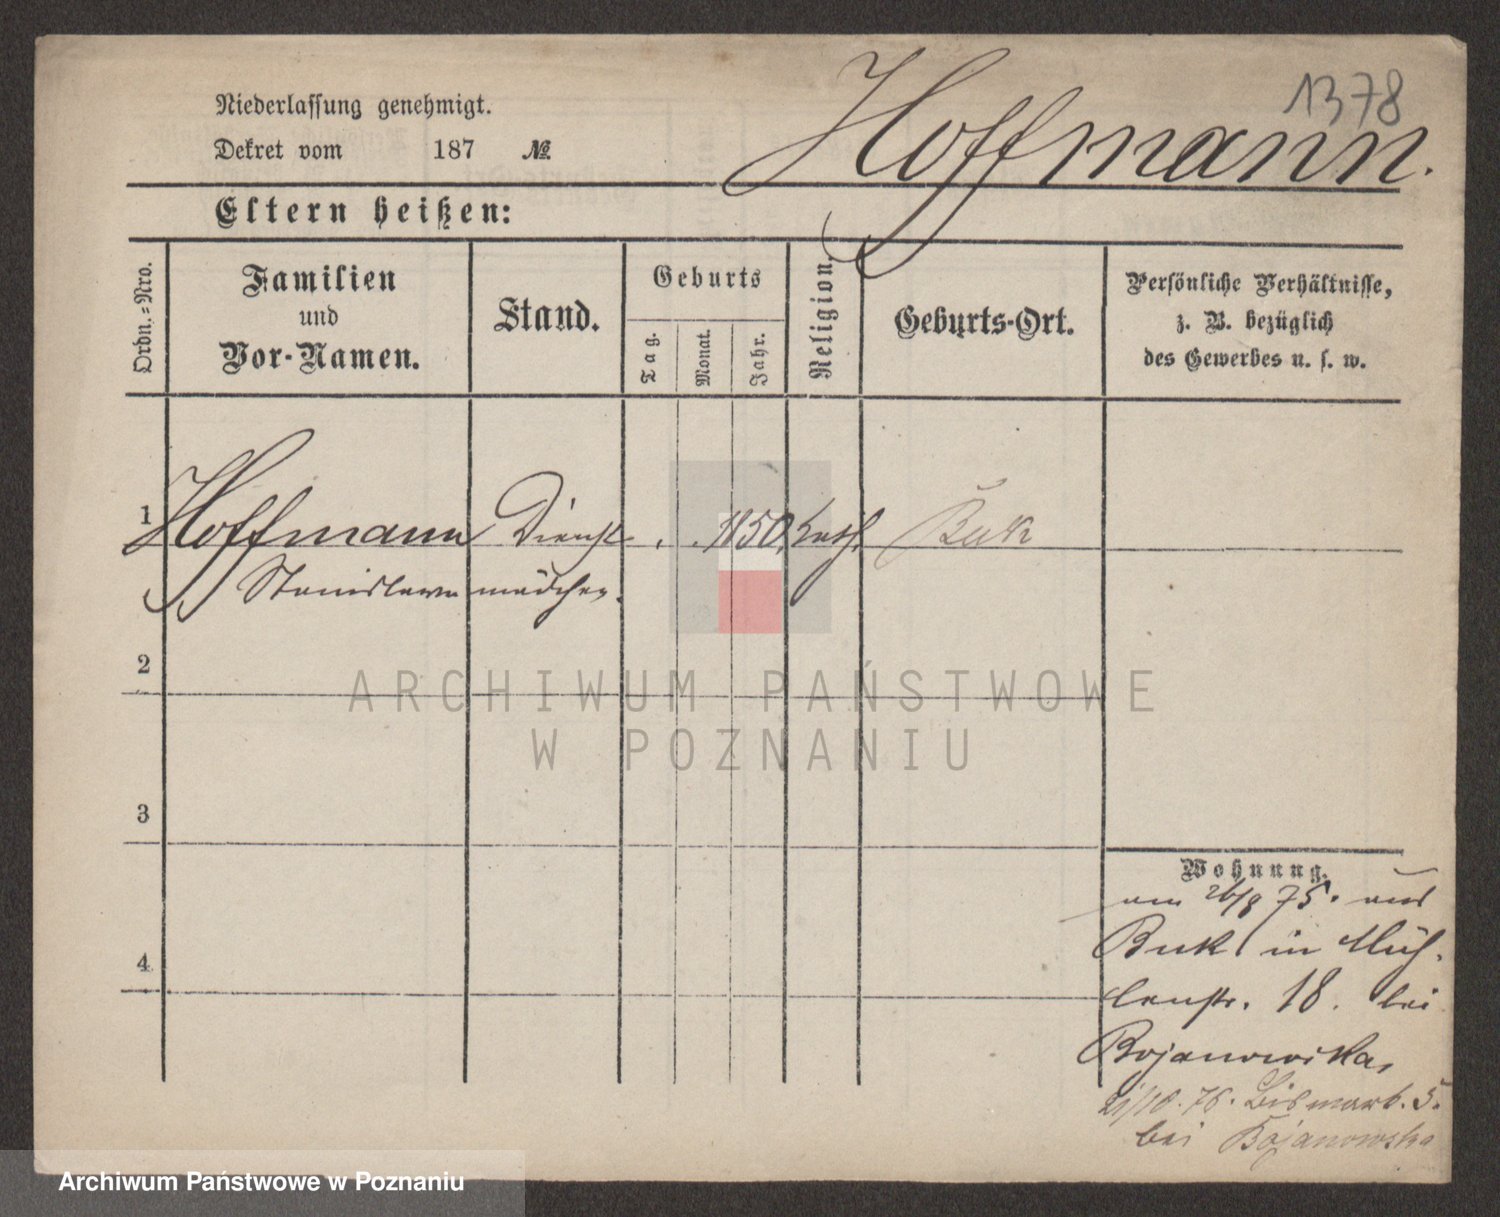 1378
Hoffmann.
Niederlassung genehmigt.
Dekret vom 187 №
Eltern heißen:
Ordn.-Nro.
Familien
und
Vor-Namen.
Stand.
Geburts
Tag.
Monat.
Jahr.
Religion.
Geburts-Ort.
Persönliche Verhältnisse,
z. B. bezüglich
des Gewerbes u. s. w.
1 Hoffmann Dienst- . . 1850. kath. Buk
Stanislawa mädchen.
2
ARCHIWUM PAŃSTWOWE
W POZNANIU
3
4
Wohnung.
am 26/8 75. aus
Buk in Müh-
lenstr. 18. bei
Bojanowska,
/10. 76. Bismark. 5.
bei Bojanowska
Archiwum Państwowe w Poznaniu